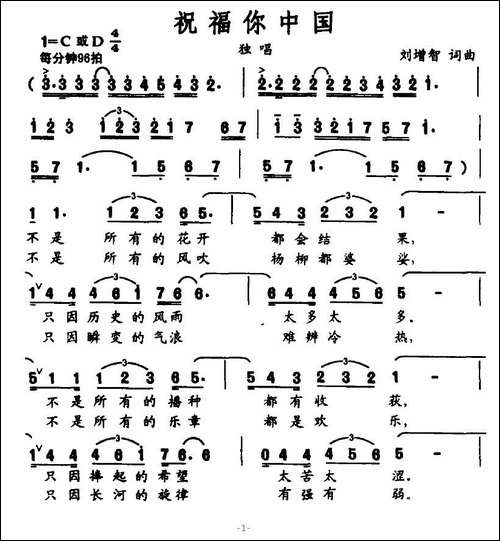 祝福你中国
1=C 或 D 4/4
独唱
每分钟96拍
刘增智 词曲
(3·3·3 3 3 4 5 4 3 2· | 2·2·2 2 2 3 4 3 2 1·
1 2 3 1 2 3 2 1 7 6 7 | 1 3 3 2 1 7 5 7 1·
5 7 1· 1 5 | 5 7 1· 1 5 6 7)
1 1· 1 2 3 6 5· | 5 4 3 2 3 2 1 -
不是 所有的花开 都会结 果,
不是 所有的风吹 杨柳都婆 娑,
1 4 4 4 6 1 7 6 6· | 2 4 4 4 5 6 5 -
只因历史的风雨 太多太 多。
只因瞬变的气浪 难辨冷 热,
5 1 1 1 2 3 6 5· | 5 4 3 2 3 2 1 -
不是所有的播种 都有收 获,
不是所有的乐章 都是欢 乐,
1 4 4 4 6 1 7 6· 6 | 0 4 4 4 5 6 5 -
只因捧起的希望 太苦太 涩。
只因长河的旋律 有强有 弱。
-1-